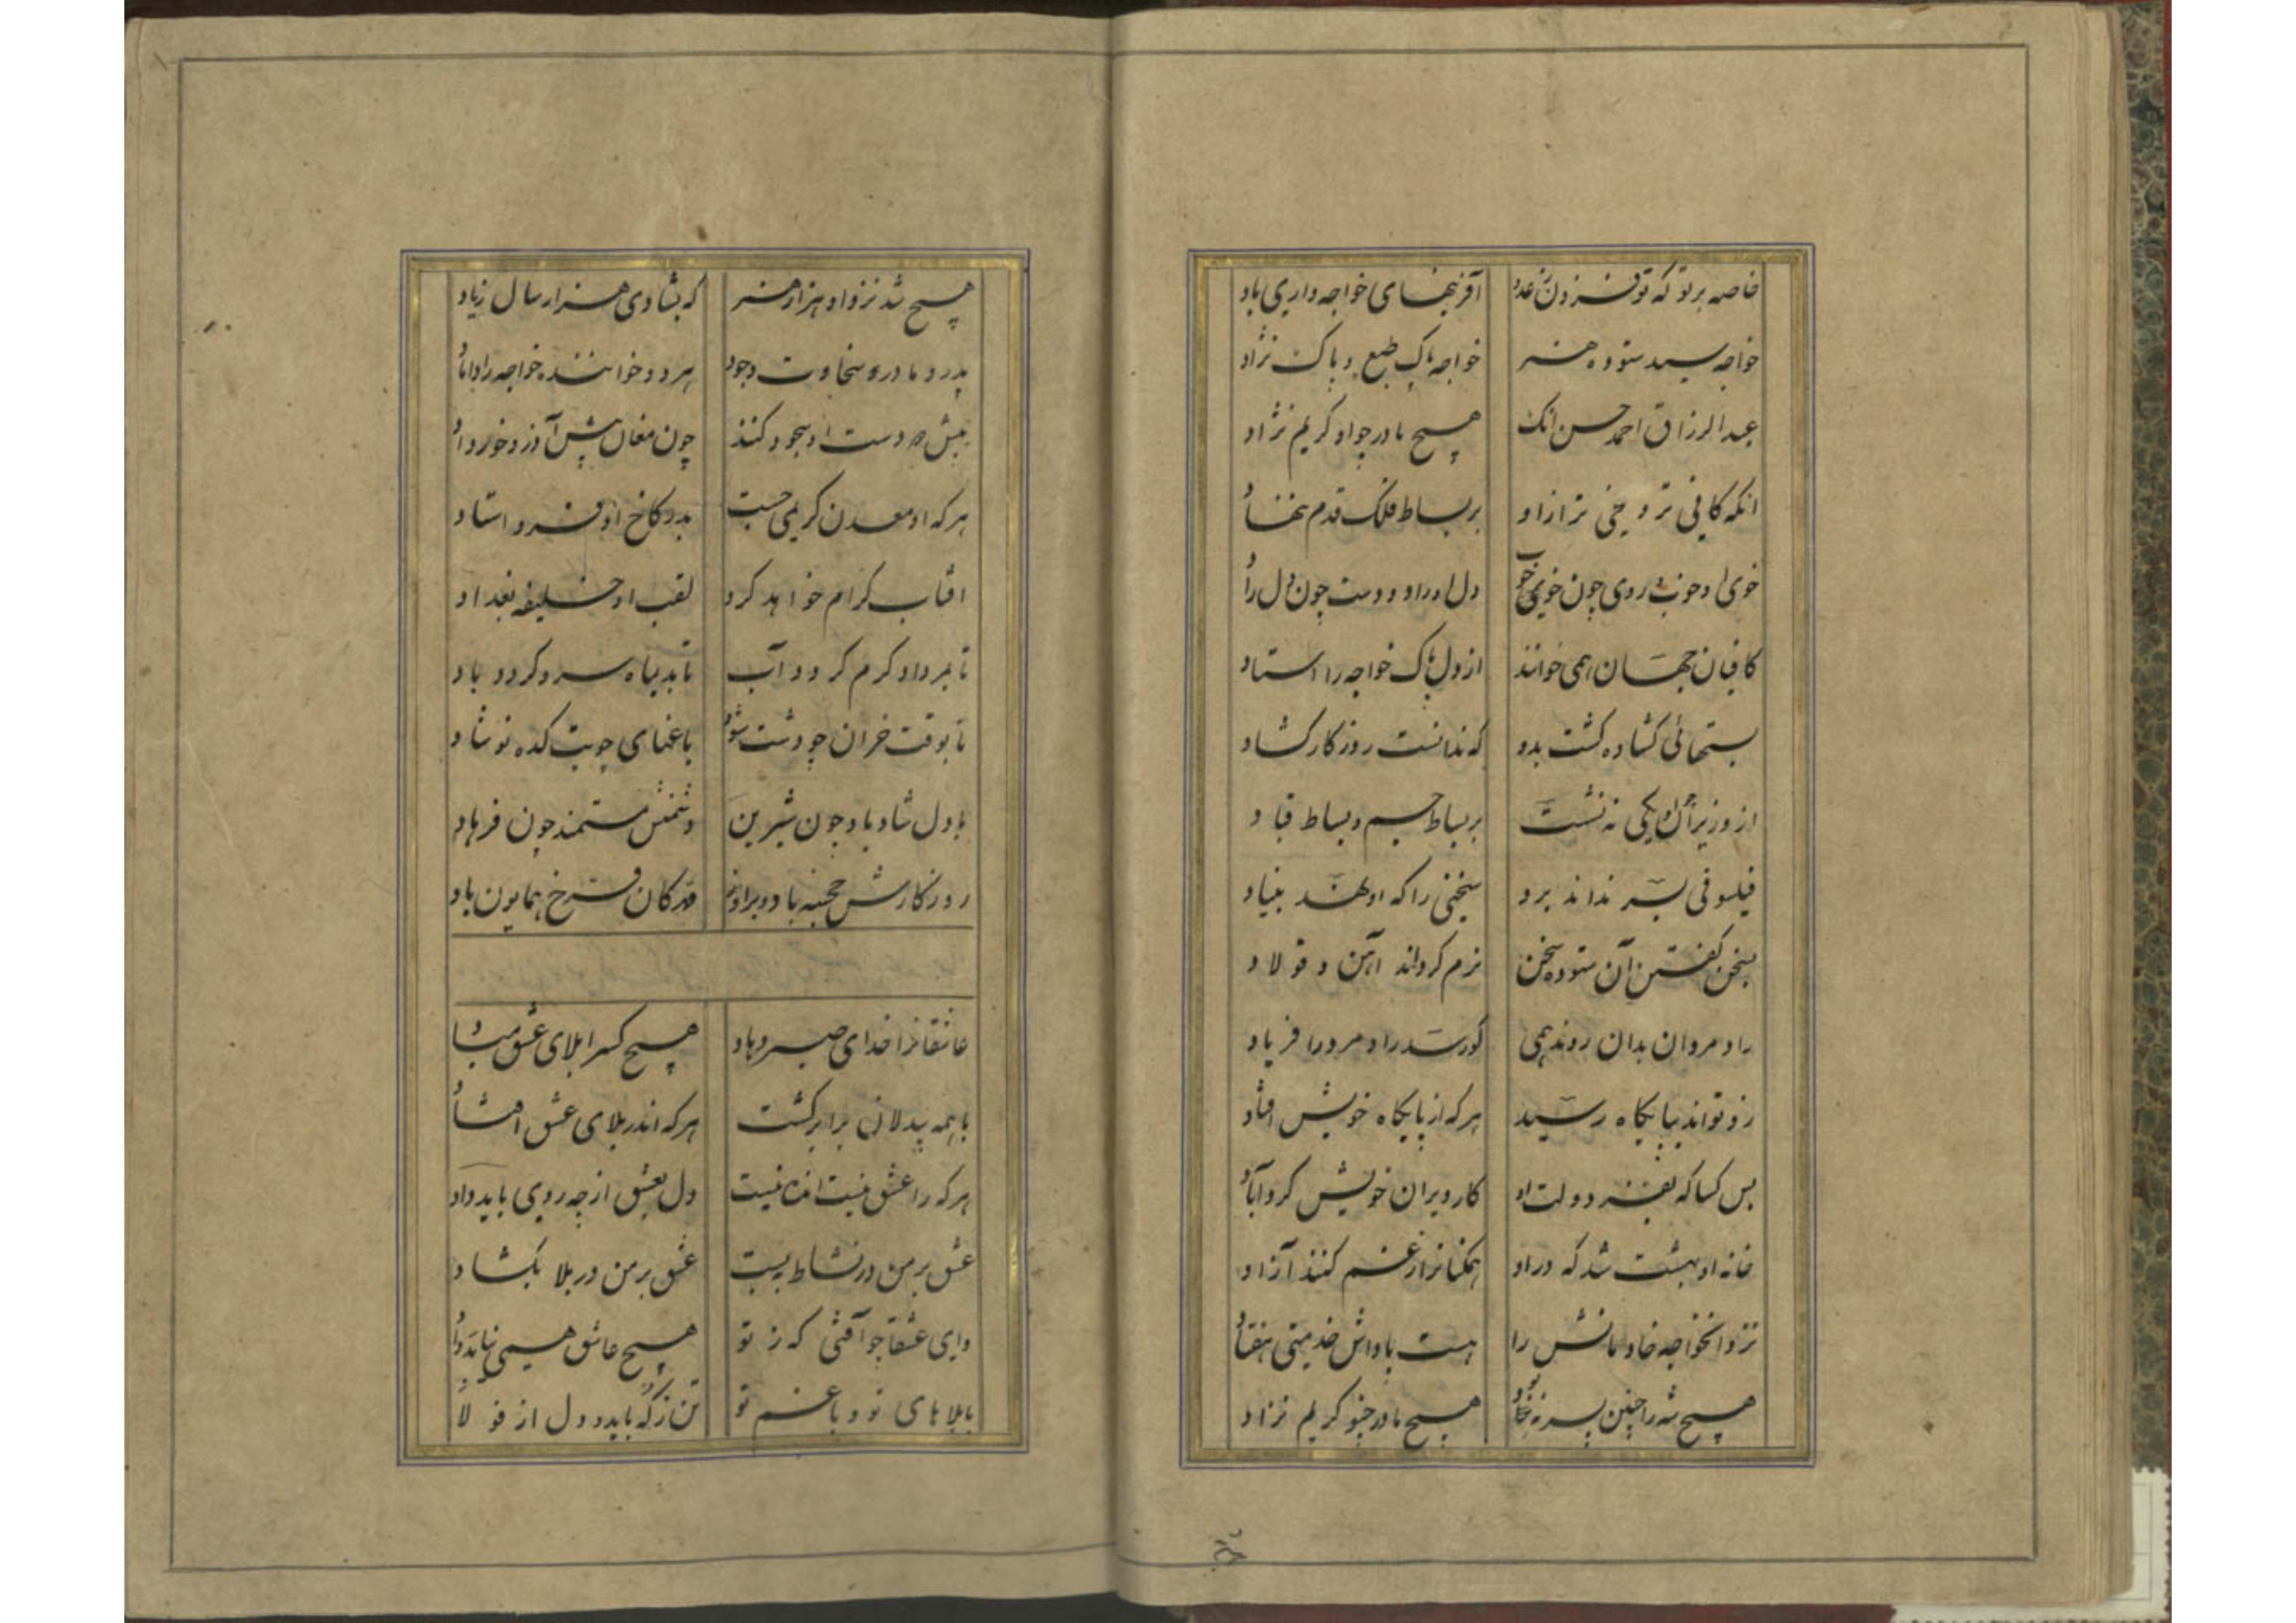 خاصه بر تو که تو فزون ز عدد آفرینهای خواجه داری یاد
خواجه سید ستوده هنر خواجه پاک طبع و پاک نژاد
عبدالرزاق احمد حسن انک هیچ مادر چو او کریم نزاد
انکه کافی تر و سخی تر ازاو بر بساط فلک قدم ننهاد
خوی او خوب و روی چون خوی خوب دل او راد و دست چون دل راد
کافیان جهان همی خوانند از دل پاک خواجه را استاد
بستهائی کشاده کشت بدو که ندانست روزکار کشاد
از وزیران یکی نه نشست بر بساط جم و بساط قباد
فیلسوفی بسر نداند برد سخنی را که او نهد بنیاد
بسخن کفتن آن ستوده سخن نرم کرداند اهن و فولاد
راد مردان بدان روند همی کو رسد راد مرد را فریاد
زو تواند بپایکاه رسید هر که از پایکاه خویش افتاد
بس کسا که بفر دولت او کار ویران خویش کرد آباد
خانه او بهشت شد که در او همکنانرا ز غم کنند آزاد
نزد انخواجه خادمانش را هست پاداش خدمتی هفتاد
هیچ شه را چنین پسر هیچ مادر چنو کریم نزاد
هیچ شد نزد او هزار هنر که بشادی هزار سال زیاد
پدر و مادر سخاوت و جود هر دو خوانند خواجه را داماد
پیش دست او سجود کنند چون مغان پیش آذر خورداد
هر که او معدن کریمی جست بدر کاخ او فرو استاد
افتاب کرام خواهد کرد لقب او خلیفه بغداد
تا بمرداد کرم کردد آب تا بدیماه سرد کردد باد
تا بوقت خزان چو دشت شود باغهای چو بتکده نوشاد
با دل شاد باد چون شیرین دشمنش مستمند چون فرهاد
روزکارش خجسته باد و بر او مهرکان فرخ همایون باد
عاشقانرا خدای صبر دهاد هیچ کسرا بلای عشق مباد
با همه بیدلان برابر کشت هر که اندر بلای عشق افتاد
هر که را عشق نیست انده نیست دل بعشق از چه روی باید داد
عشق بر من در نشاط ببست عشق بر من در بلا بکشاد
وای عشقا چو آفتی که ز تو هیچ عاشق همی نیابد داد
با بلاهای تو و با غم تو تن ز که باید و دل از فولاد